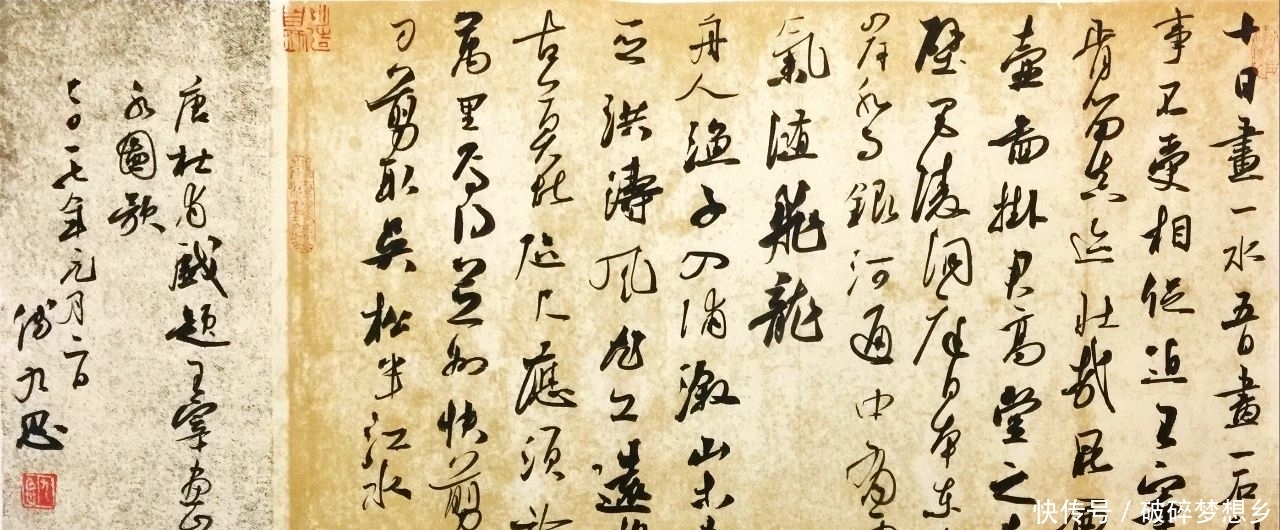 十日畫一水五日畫一石
事不受相促迫王宰
肯留真迹壯哉昆
壺圖掛君高堂之
壁巴陵洞庭日本東
岸水与銀河通中有
氣隨飛龍
舟人漁子入浦漵山木
亞洪濤風尤工遠
古莫比咫尺應須
萬里焉得并州快剪
刀剪取吳松半江水
唐杜甫戲題王宰畫山
水圖歌
二〇一七年元月二日
九思
快传号/破碎梦想乡